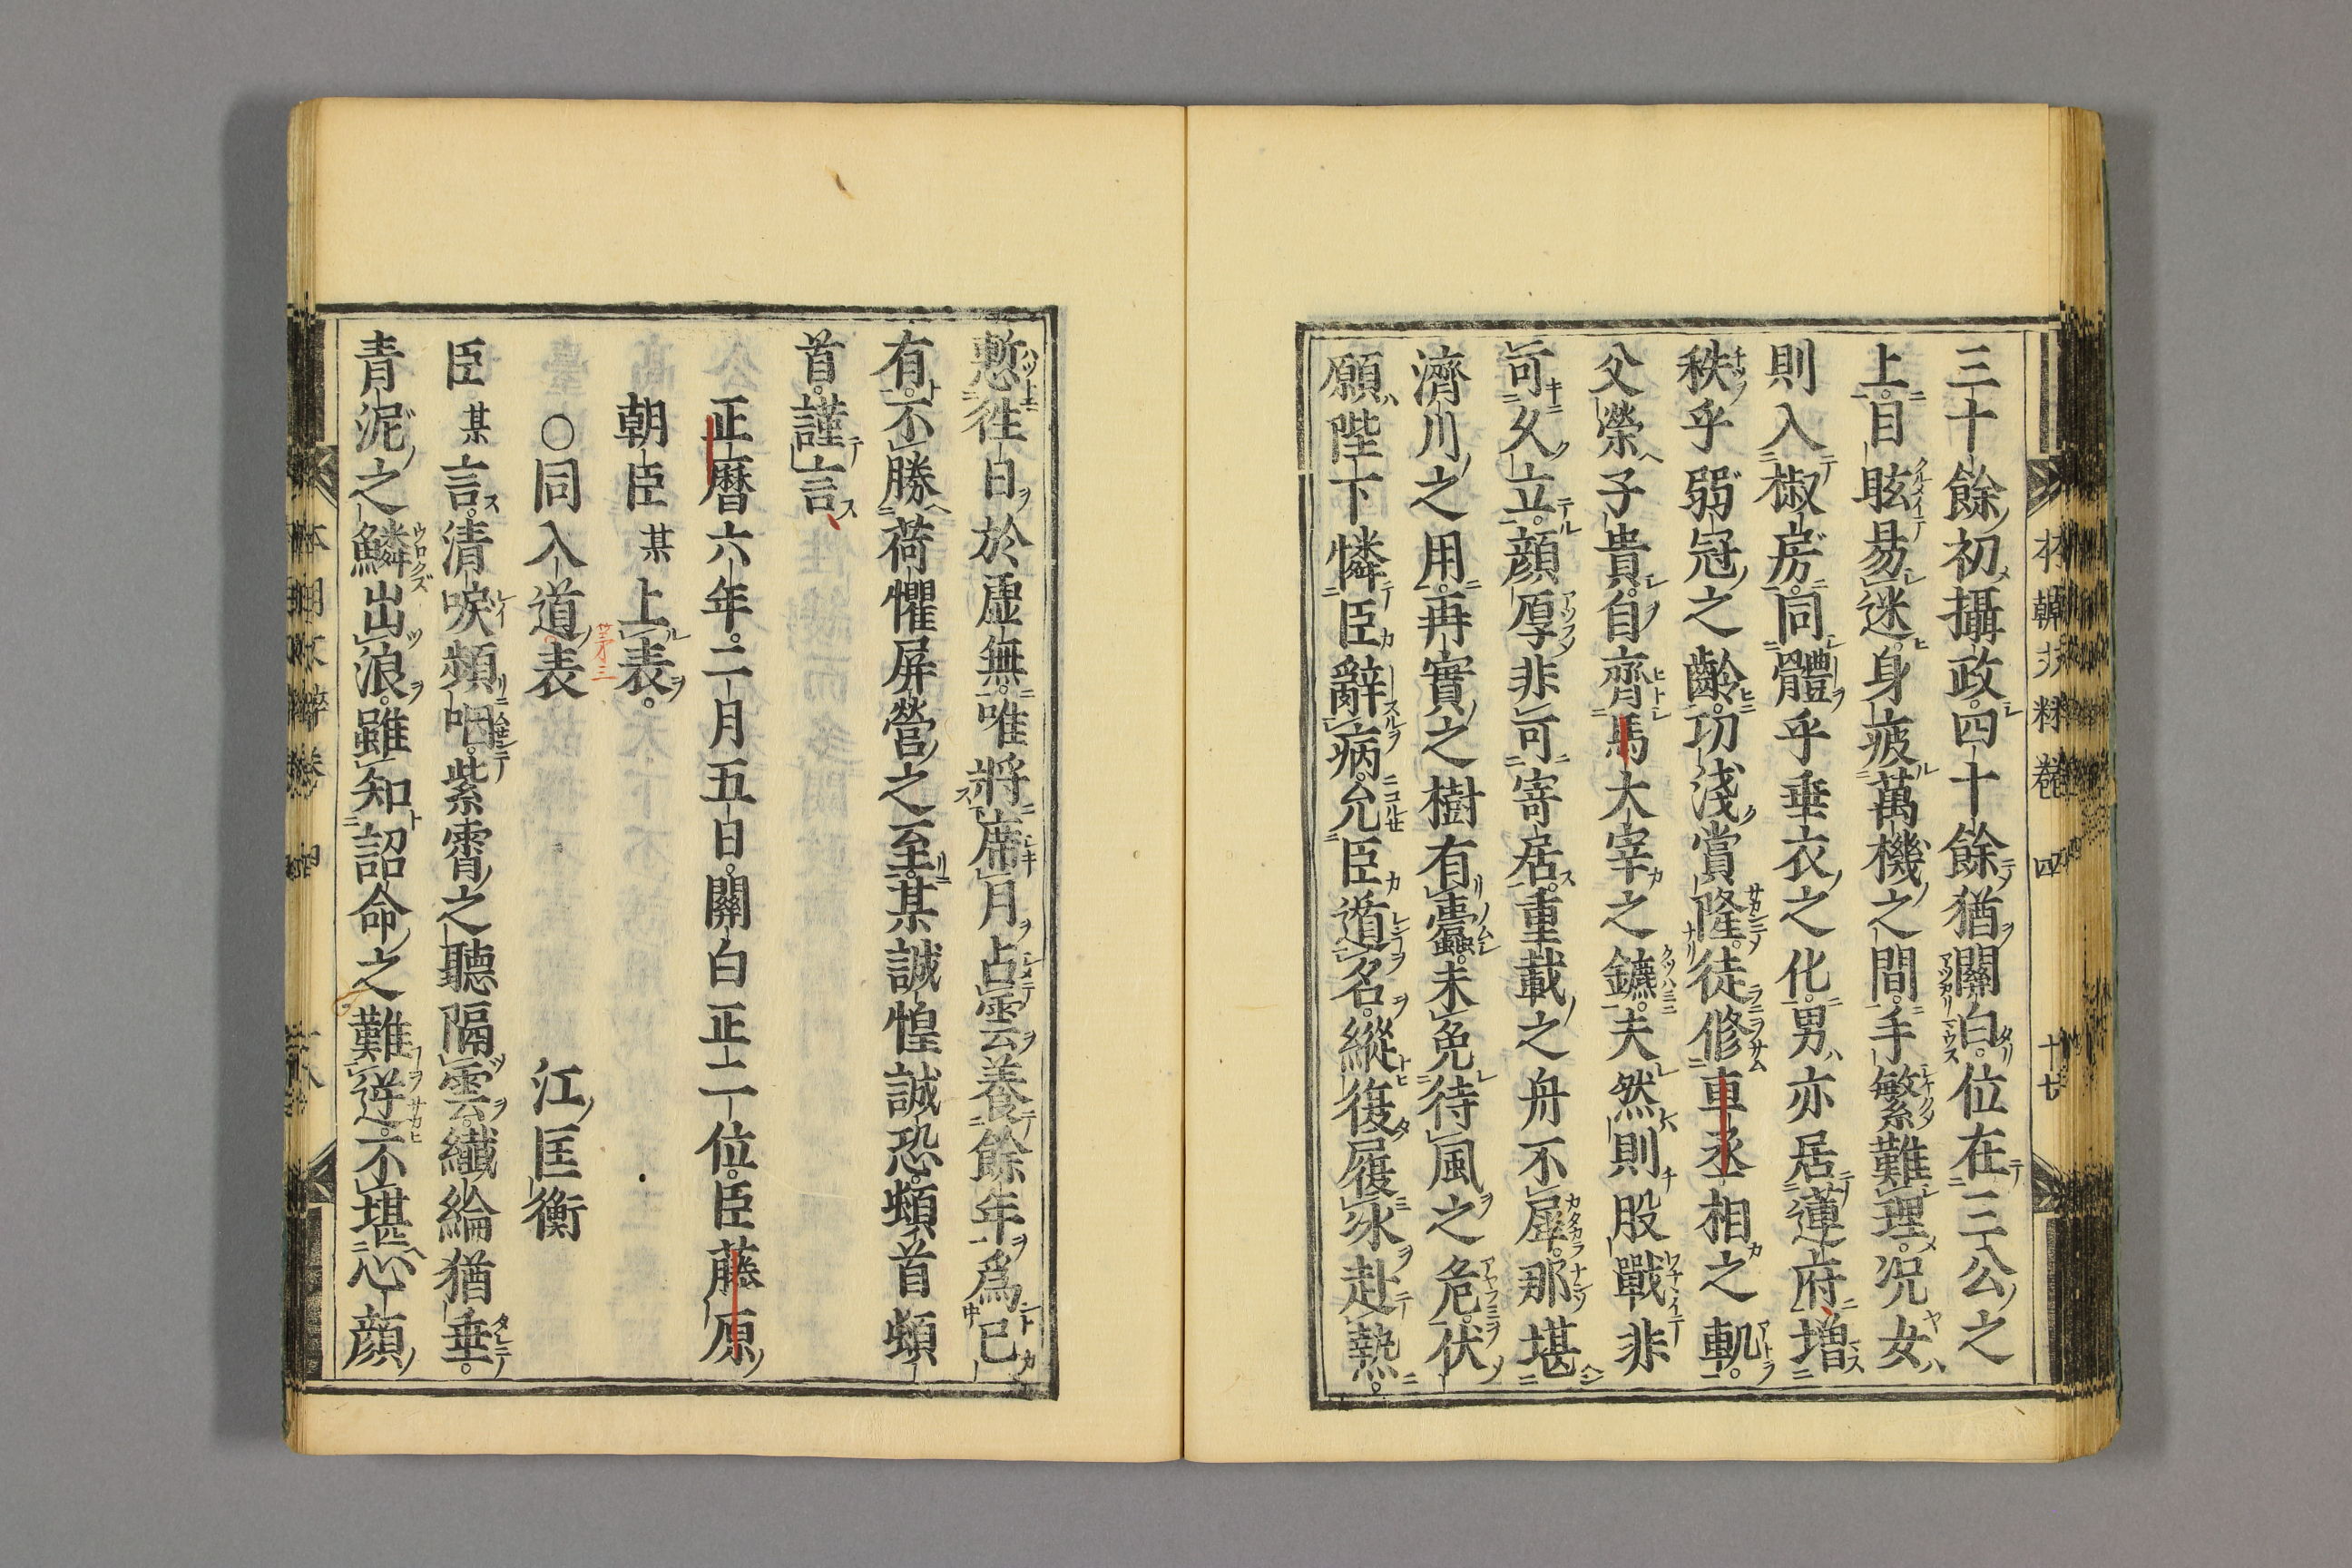 三十餘初攝政。四十餘猶關白。位在三公之
上。目眩易迷。身疲萬機之間。手繁難理。况女
則入椒房。同體乎垂衣之化。男亦居蓮府。増
秩乎弱冠之齡。功淺賞隆。徒修車丞相之軌。
父榮子貴。自齊馬大宰之鑣。夫然則股戰非
可久立。顔厚非可寄居。重載之舟不犀。那堪
濟川之用。再實之樹有蠹。未免待風之危。伏
願陛下憐臣辭病。允臣遁名。縱復履氷赴熱。
慙徃日於虚無。唯將席月占雲養餘年爲已
有。不勝荷懼屏營之至。某誠惶誠恐。頓首頓
首。謹言
正暦六年。二月五日。關白正二位。臣藤原
朝臣某上表。
〇同入道表 江匡衡
臣某言。清唳頻咽。紫霄之聽隔雲。纎綸猶垂。
青泥之鱗出浪。雖知詔命之難逆。不堪心顔